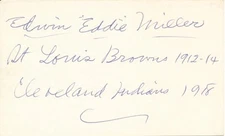 Edwin "Eddie" Miller
St Louis Browns 1912-14
Cleveland Indians 1918